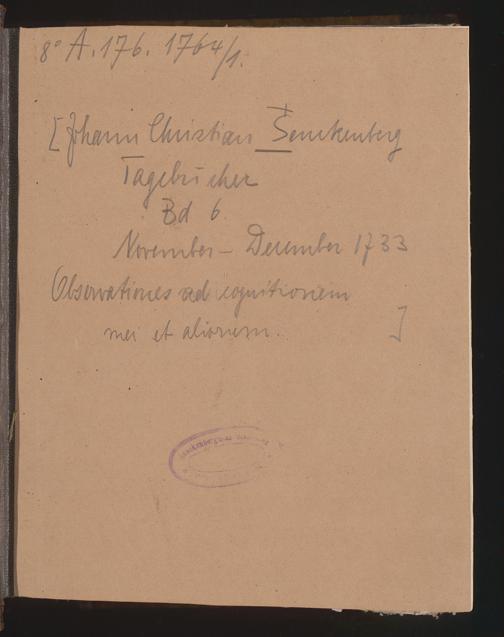 8° A. 176. 1764/1.
[Johann Christian Senckenberg
Tagebücher
Bd 6
November - Dezember 1733
Observationes ad cognitionem
mei et aliorum. ]